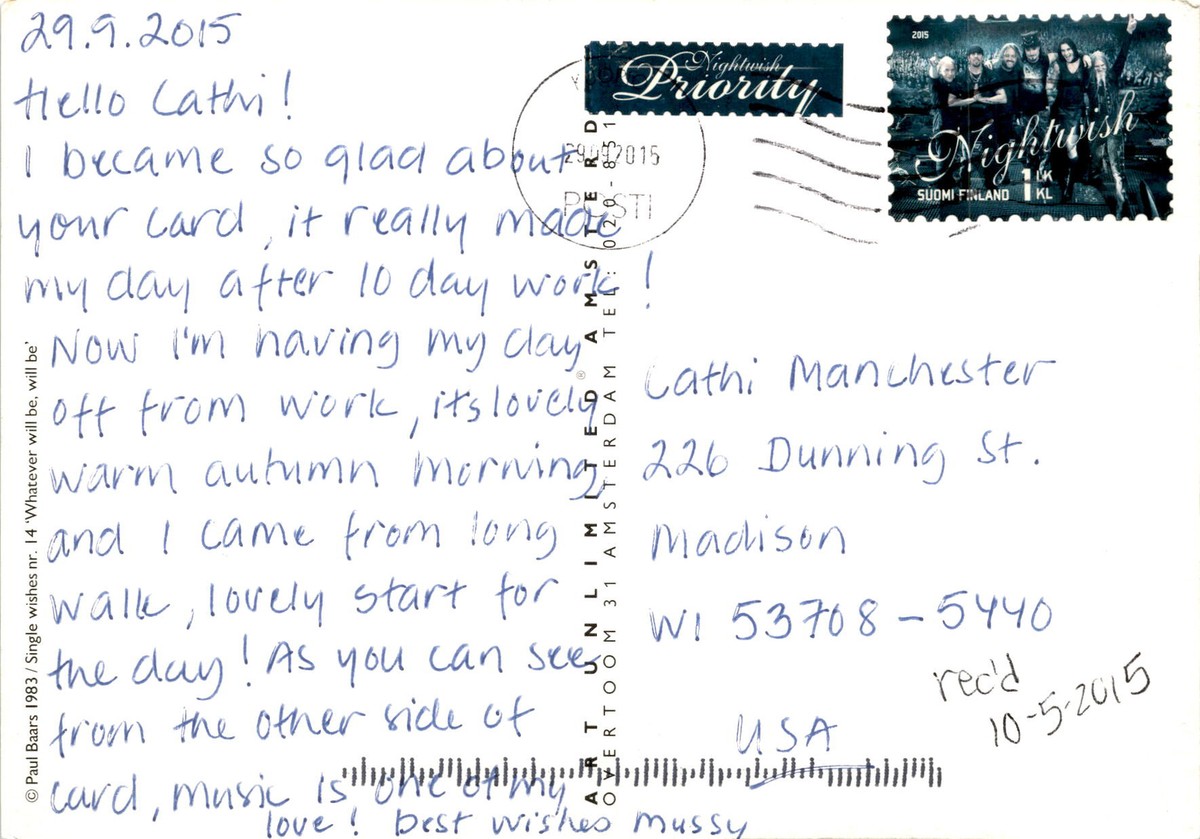 29.9.2015
Hello Cathi!
I became so glad about
your card, it really made
my day after 10 day work!
Now I'm having my day
off from work, its lovely
warm autumn morning,
and I came from long
walk, lovely start for
the day! As you can see
from the other side of
card, music is one of my
love! Best wishes Mussy
© Paul Baars 1983 / Single wishes nr. 14 'Whatever will be, will be'
ART UNLIMITED® AMSTERDAM
OVERTOOM 31 AMSTERDAM TEL: 020-851
Nightwish
Priority
29.09.2015
POSTI
2015
Nightwish
SUOMI FINLAND 1 LK
KL
Cathi Manchester
226 Dunning St.
Madison
WI 53708-5440
USA
rec'd
10-5-2015